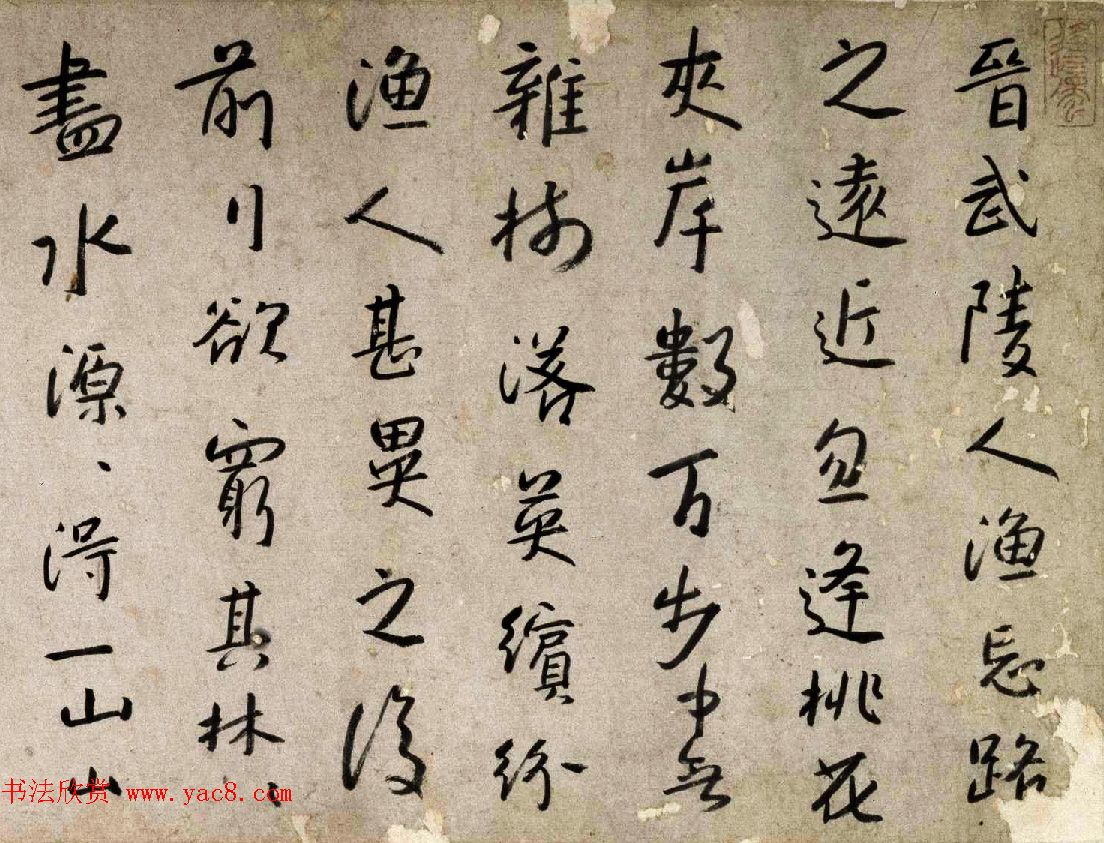 晉武陵人漁忘路
之遠近忽逢桃花
夾岸數百步中無
雜樹落英繽紛
漁人甚異之復
前行欲窮其林、
盡水源、得一山山
书法欣赏 www.yac8.com